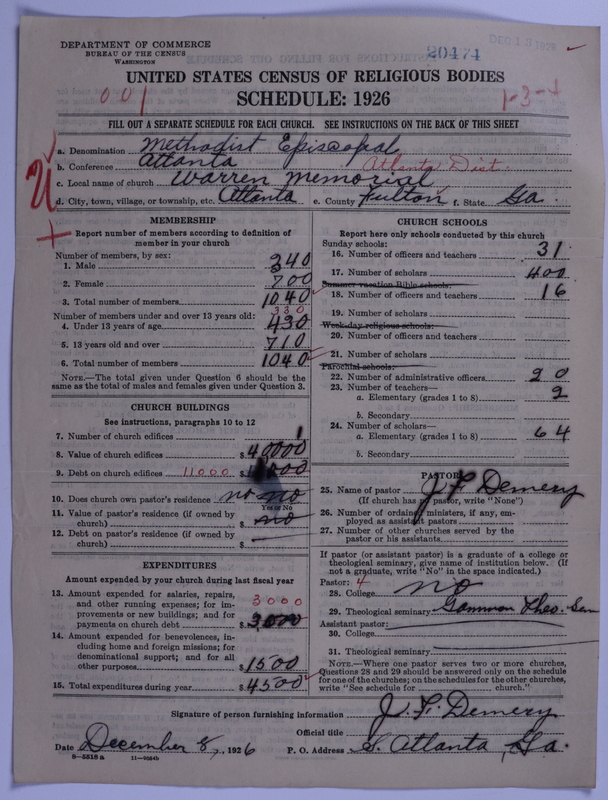 DEPARTMENT OF COMMERCE
BUREAU OF THE CENSUS
WASHINGTON
20474
DEC 13 1926
UNITED STATES CENSUS OF RELIGIOUS BODIES
001
SCHEDULE: 1926
1-3-1
FILL OUT A SEPARATE SCHEDULE FOR EACH CHURCH. SEE INSTRUCTIONS ON THE BACK OF THIS SHEET
a. Denomination Methodist Episcopal
b. Conference Atlanta Atlanta Dist
c. Local name of church Warren Memorial
d. City, town, village, or township, etc. Atlanta e. County Fulton f. State Ga.
MEMBERSHIP
Report number of members according to definition of
member in your church
Number of members, by sex:
1. Male 340
2. Female 700
3. Total number of members 1040
Number of members under and over 13 years old: 330
4. Under 13 years of age 430
5. 13 years old and over 710
6. Total number of members 1040
NOTE.—The total given under Question 6 should be the
same as the total of males and females given under Question 3.
CHURCH BUILDINGS
See instructions, paragraphs 10 to 12
7. Number of church edifices 1
8. Value of church edifices $ 40000
9. Debt on church edifices 11000 $
10. Does church own pastor's residence no no
Yes or No
11. Value of pastor's residence (if owned by
church) $ no
12. Debt on pastor's residence (if owned by
church) $
EXPENDITURES
Amount expended by your church during last fiscal year
13. Amount expended for salaries, repairs,
and other running expenses; for im- 3000
provements or new buildings; and for
payments on church debt $ 3,000
14. Amount expended for benevolences, in-
cluding home and foreign missions; for
denominational support; and for all
other purposes $ 1500
15. Total expenditures during year $ 4500
CHURCH SCHOOLS
Report here only schools conducted by this church
Sunday schools:
16. Number of officers and teachers 31
17. Number of scholars 400
Summer vacation Bible schools:
18. Number of officers and teachers 16
19. Number of scholars
Week-day religious schools:
20. Number of officers and teachers
21. Number of scholars
Parochial schools:
22. Number of administrative officers 20
23. Number of teachers—
a. Elementary (grades 1 to 8) 2
b. Secondary
24. Number of scholars—
a. Elementary (grades 1 to 8) 64
b. Secondary
PASTOR
25. Name of pastor J. F. Demery
(If church has no pastor, write "None")
26. Number of ordained ministers, if any, em-
ployed as assistant pastors
27. Number of other churches served by the
pastor or his assistants
If pastor (or assistant pastor) is a graduate of a college or
theological seminary, give name of institution below. (If
not a graduate, write "No" in the space indicated.)
Pastor: 4
28. College no
29. Theological seminary Gammon Theo. Sem
Assistant pastor:
30. College
31. Theological seminary
NOTE.—Where one pastor serves two or more churches,
Questions 28 and 29 should be answered only on the schedule
for one of the churches; on the schedules for the other churches,
write "See schedule for church."
Signature of person furnishing information J. F. Demery
Official title
Date December 8, 1926 P. O. Address S. Atlanta, Ga.
8—5518 a 11—9064b